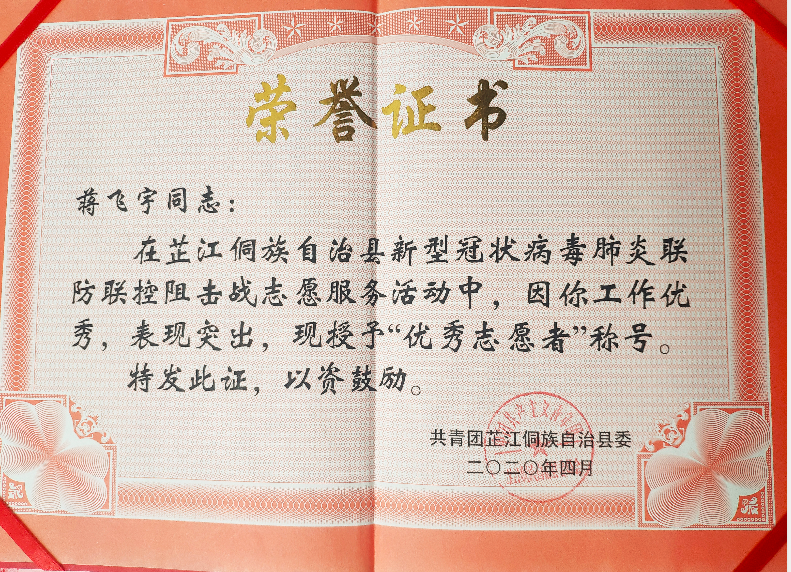 荣誉证书
蒋飞宇同志：
在芷江侗族自治县新型冠状病毒肺炎联
防联控阻击战志愿服务活动中，因你工作优
秀，表现突出，现授予“优秀志愿者”称号。
特发此证，以资鼓励。
共青团芷江侗族自治县委
二〇二〇年四月